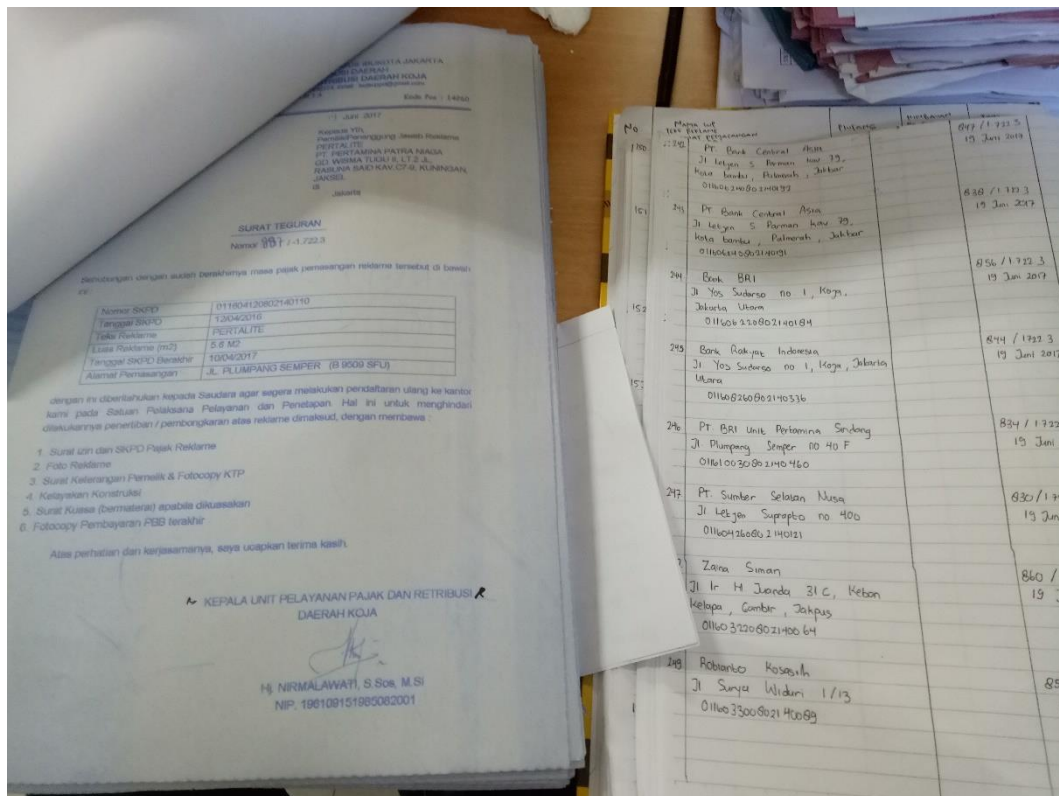 JAKARTA
DAERAH
RETRIBUSI DAERAH KOJA
Kode Pos : 14210
Juni 2017
Kepada Yth,
Pemilik/Penanggung Jawab Reklame
PERTALITE
PT. PERTAMINA PATRA NIAGA
GD. WISMA TUGU II, LT.2 JL.
RASUNA SAID KAV.C7-9, KUNINGAN,
JAKSEL
di
Jakarta
SURAT TEGURAN
Nomor / -1.722.3
Sehubungan dengan sudah berakhirnya masa pajak pemasangan reklame tersebut di bawah
ini :
Nomor SKPD 011604120802140110
Tanggal SKPD 12/04/2016
Teks Reklame PERTALITE
Luas Reklame (m2) 5.6 M2
Tanggal SKPD Berakhir 10/04/2017
Alamat Pemasangan JL. PLUMPANG SEMPER (B 9509 SFU)
dengan ini diberitahukan kepada Saudara agar segera melakukan pendaftaran ulang ke kantor
kami pada Satuan Polaksana Pelayanan dan Penetapan. Hal ini untuk menghindari
dilakukannya penertiban / pembongkaran atas reklame dimaksud, dengan membawa :
1. Surat izin dan SKPD Pajak Reklame
2. Foto Reklame
3. Surat Keterangan Pemelik & Fotocopy KTP
4. Kelayakan Konstruksi
5. Surat Kuasa (bermaterai) apabila dikuasakan
6. Fotocopy Pembayaran PBB terakhir
Atas perhatian dan kerjasamanya, saya ucapkan terima kasih.
KEPALA UNIT PELAYANAN PAJAK DAN RETRIBUSI
DAERAH KOJA
Hj. NIRMALAWATI, S.Sos, M.Si
NIP. 196109151985082001
No
150
151
152
242 PT. Bank Central Asia 847 / 1.722.3
Jl Letjen S Parman kav 79. 19 Juni 2017
Kota bambu, Palmerah, Jakbar
243 PT Bank Central Asia 838 / 1.722.3
Jl Letjen S Parman kav 79. 19 Juni 2017
Kota bambu, Palmerah, Jakbar
244 Bank BRI 856 / 1.722.3
Jl Yos Sudarso no 1, Koja, 19 Juni 2017
Jakarta Utara
011606220802140184
245 Bank Rakyat Indonesia 844 / 1722.3
Jl Yos Sudarso no 1, Koja, Jakarta 19 Juni 2017
Utara
011608260802140336
246 PT BRI Unit Pertamina Sindang 834 / 1.722
Jl Plumpang Semper no 40 F 19 Juni
011610030802140460
247 PT. Sumber Selatan Nusa 830 / 1.7
Jl. Letjen Suprapto no 400 19 Jun
011604260802140121
Zaina Siman 860 /
Jl Ir H Juanda 31 C, Kebon 19
Kelapa, Gambir, Jakpus
011603220802140064
249 Robianto Kosasih 85
Jl Surya Widuri 1/13
011603300802140089